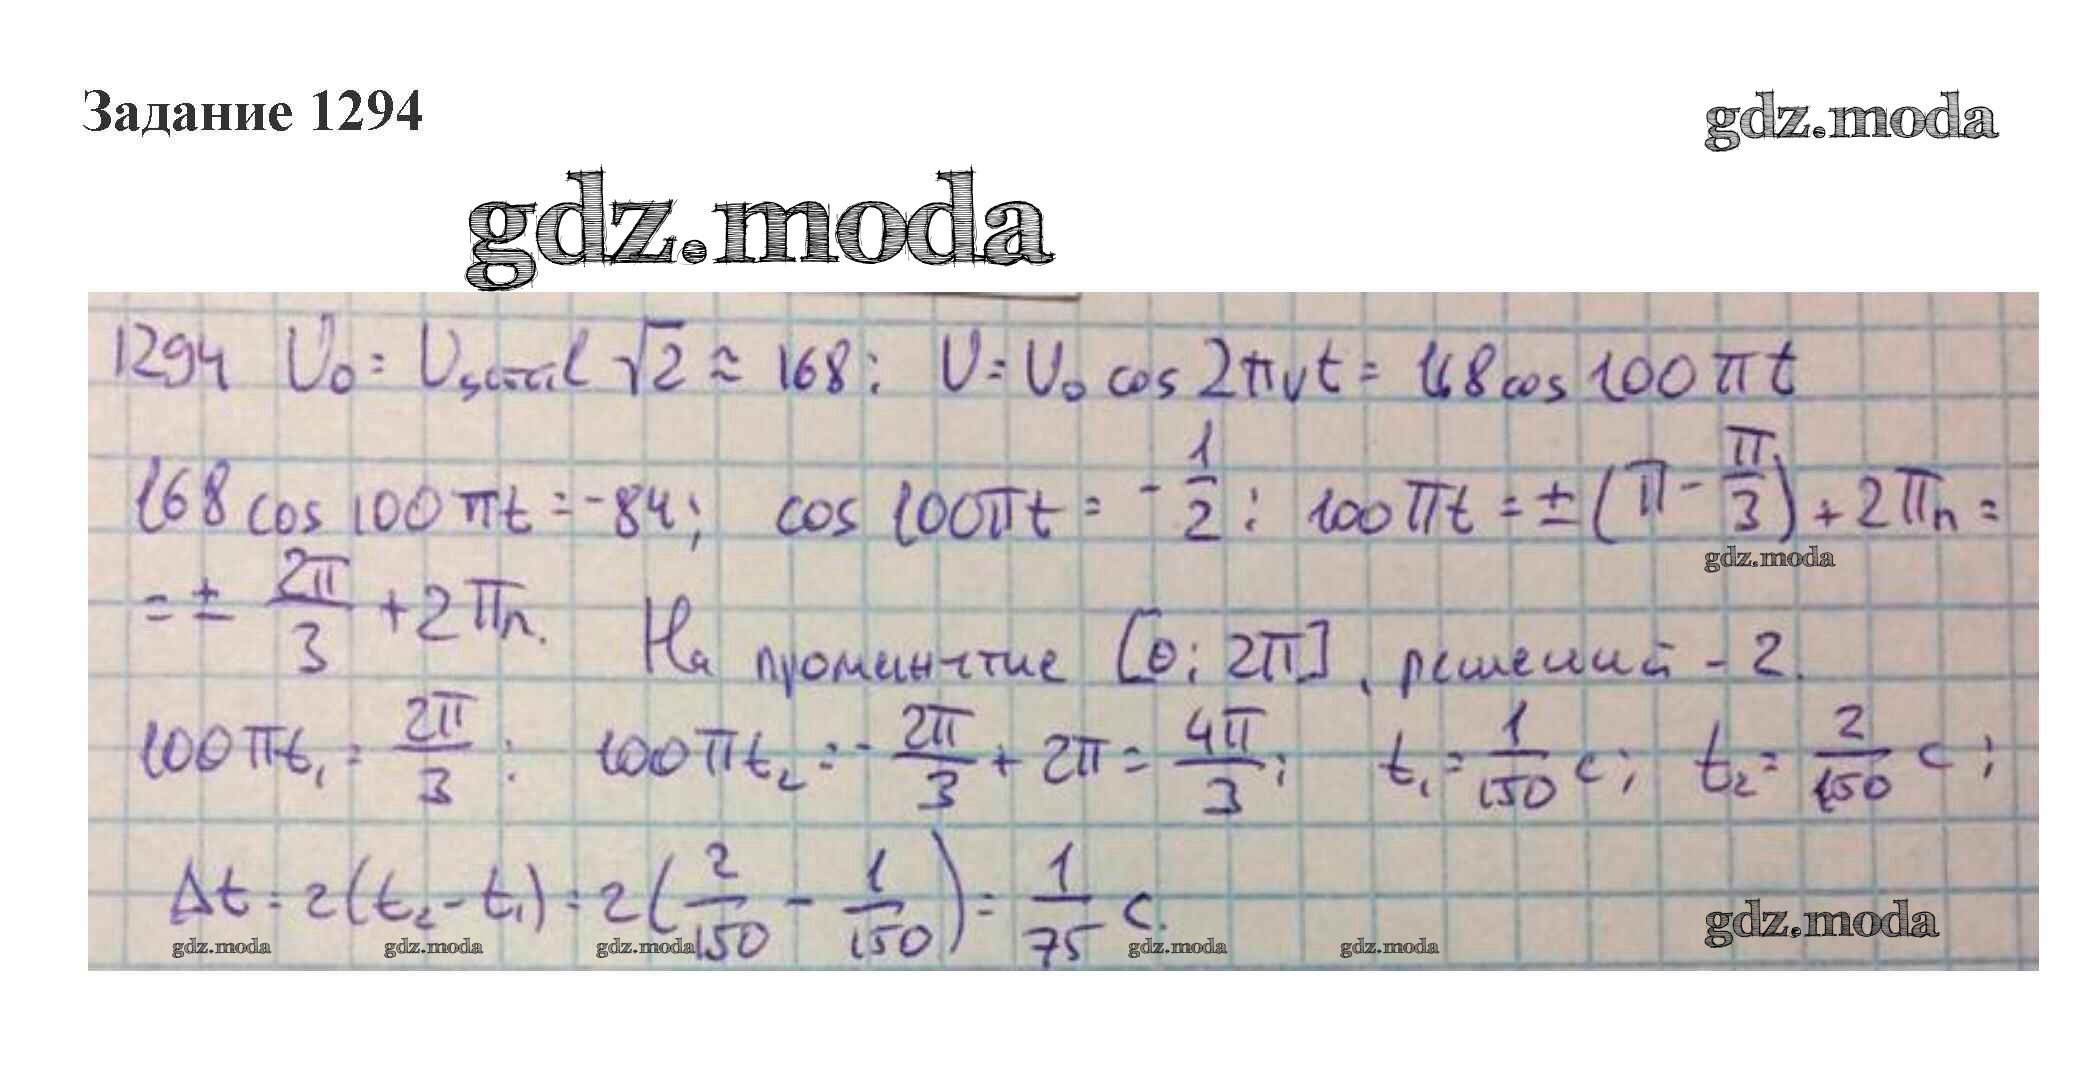 Задание 1294
gdz.moda
gdz.moda
1294 U₀ = U √2 ≈ 168; U = U₀ cos 2πνt = 168 cos 100πt
168 cos 100πt = -84; cos 100πt = -1/2; 100πt = ±(π - π/3) + 2πn =
gdz.moda
= ± 2π/3 + 2πn. На [0; 2π], решений - 2.
100πt₁ = 2π/3; 100πt₂ = -2π/3 + 2π = 4π/3; t₁ = 1/150 с; t₂ = 2/150 с;
Δt = 2(t₂ - t₁) = 2(2/150 - 1/150) = 1/75 с.
gdz.moda
gdz.moda gdz.moda gdz.moda gdz.moda gdz.moda